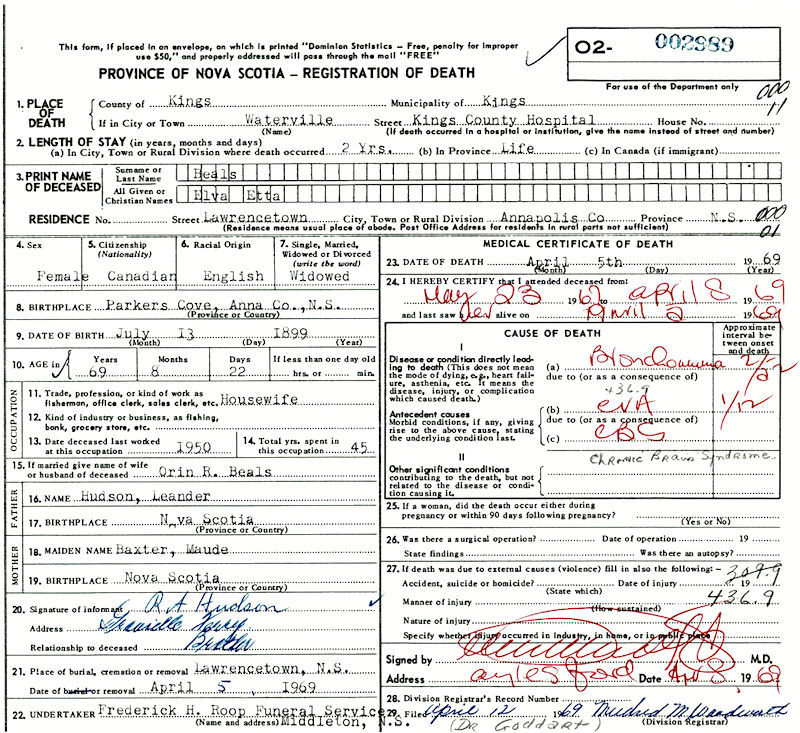 This form, if placed in an envelope, on which is printed "Dominion Statistics – Free, penalty for improper
use $50," and properly addressed will pass through the mail "FREE"
PROVINCE OF NOVA SCOTIA – REGISTRATION OF DEATH
O2- 002989
For use of the Department only
000
11
1. PLACE OF DEATH
County of Kings Municipality of Kings
If in City or Town Waterville Street Kings County Hospital House No.
(Name) (If death occurred in a hospital or institution, give the name instead of street and number)
2. LENGTH OF STAY (in years, months and days)
(a) In City, Town or Rural Division where death occurred 2 Yrs. (b) In Province Life (c) In Canada (if immigrant)
3. PRINT NAME OF DECEASED
Surname or Last Name Beals
All Given or Christian Names Elva Etta
RESIDENCE No. Street Lawrencetown City, Town or Rural Division Annapolis Co Province N.S.
(Residence means usual place of abode. Post Office Address for residents in rural parts not sufficient)
000
01
4. Sex Female
5. Citizenship (Nationality) Canadian
6. Racial Origin English
7. Single, Married, Widowed or Divorced (write the word) Widowed
8. BIRTHPLACE Parkers Cove, Anna Co., N.S.
(Province or Country)
9. DATE OF BIRTH July 13 1899
(Month) (Day) (Year)
10. AGE in Years 69 Months 8 Days 22 If less than one day old hrs. or min.
OCCUPATION
11. Trade, profession, or kind of work as fishermon, office clerk, sales clerk, etc. Housewife
12. Kind of industry or business, as fishing, bonk, grocery store, etc.
13. Date deceased last worked at this occupation 1950
14. Total yrs. spent in this occupation 45
15. If married give name of wife or husband of deceased Orin R. Beals
FATHER
16. NAME Hudson, Leander
17. BIRTHPLACE N va Scotia
(Province or Country)
MOTHER
18. MAIDEN NAME Baxter, Maude
19. BIRTHPLACE Nova Scotia
(Province or Country)
20. Signature of informant R A Hudson
Address Granville Ferry
Relationship to deceased Brother
21. Place of burial, cremation or removal lawrencetown, N.S.
Date of burial or removal April 5, 1969
22. UNDERTAKER Frederick H. Roop Funeral Service
(Name and address) Middleton, N.S.
MEDICAL CERTIFICATE OF DEATH
23. DATE OF DEATH April 5th 1969
(Month) (Day) (Year)
24. I HEREBY CERTIFY that I attended deceased from:
May 23 1967 to April 8 1969
and last saw her alive on April 2 1969
CAUSE OF DEATH
Approximate interval between onset and death
I
Disease or condition directly leading to death (This does not mean the mode of dying, e.g., heart failure, asthenia, etc. It means the disease, injury, or complication which caused death.)
(a)
due to (or as a consequence of)
436.9
Antecedent causes
Morbid conditions, if any, giving rise to the above cause, stating the underlying condition last.
(b) CVA 1/12
due to (or as a consequence of)
(c) CBS
Chronic Brain Syndrome
II
Other significant conditions
contributing to the death, but not related to the disease or condition causing it.
25. If a woman, did the death occur either during pregnancy or within 90 days following pregnancy?
(Yes or No)
26. Was there a surgical operation? Date of operation 19
State findings Was there an autopsy?
27. If death was due to external causes (violence) fill in also the following: – 309.9
Accident, suicide or homicide? Date of injury 19
(State which)
Manner of injury 436.9
(how sustained)
Nature of injury
Specify whether injury occurred in industry, in home, or in public place
Signed by M.D.
Address Aylesford Date Apr 8, 1969
28. Division Registrar's Record Number
29. Filed April 12 1969 Mildred M. Woodworth
(Dr Goddart) (Division Registrar)